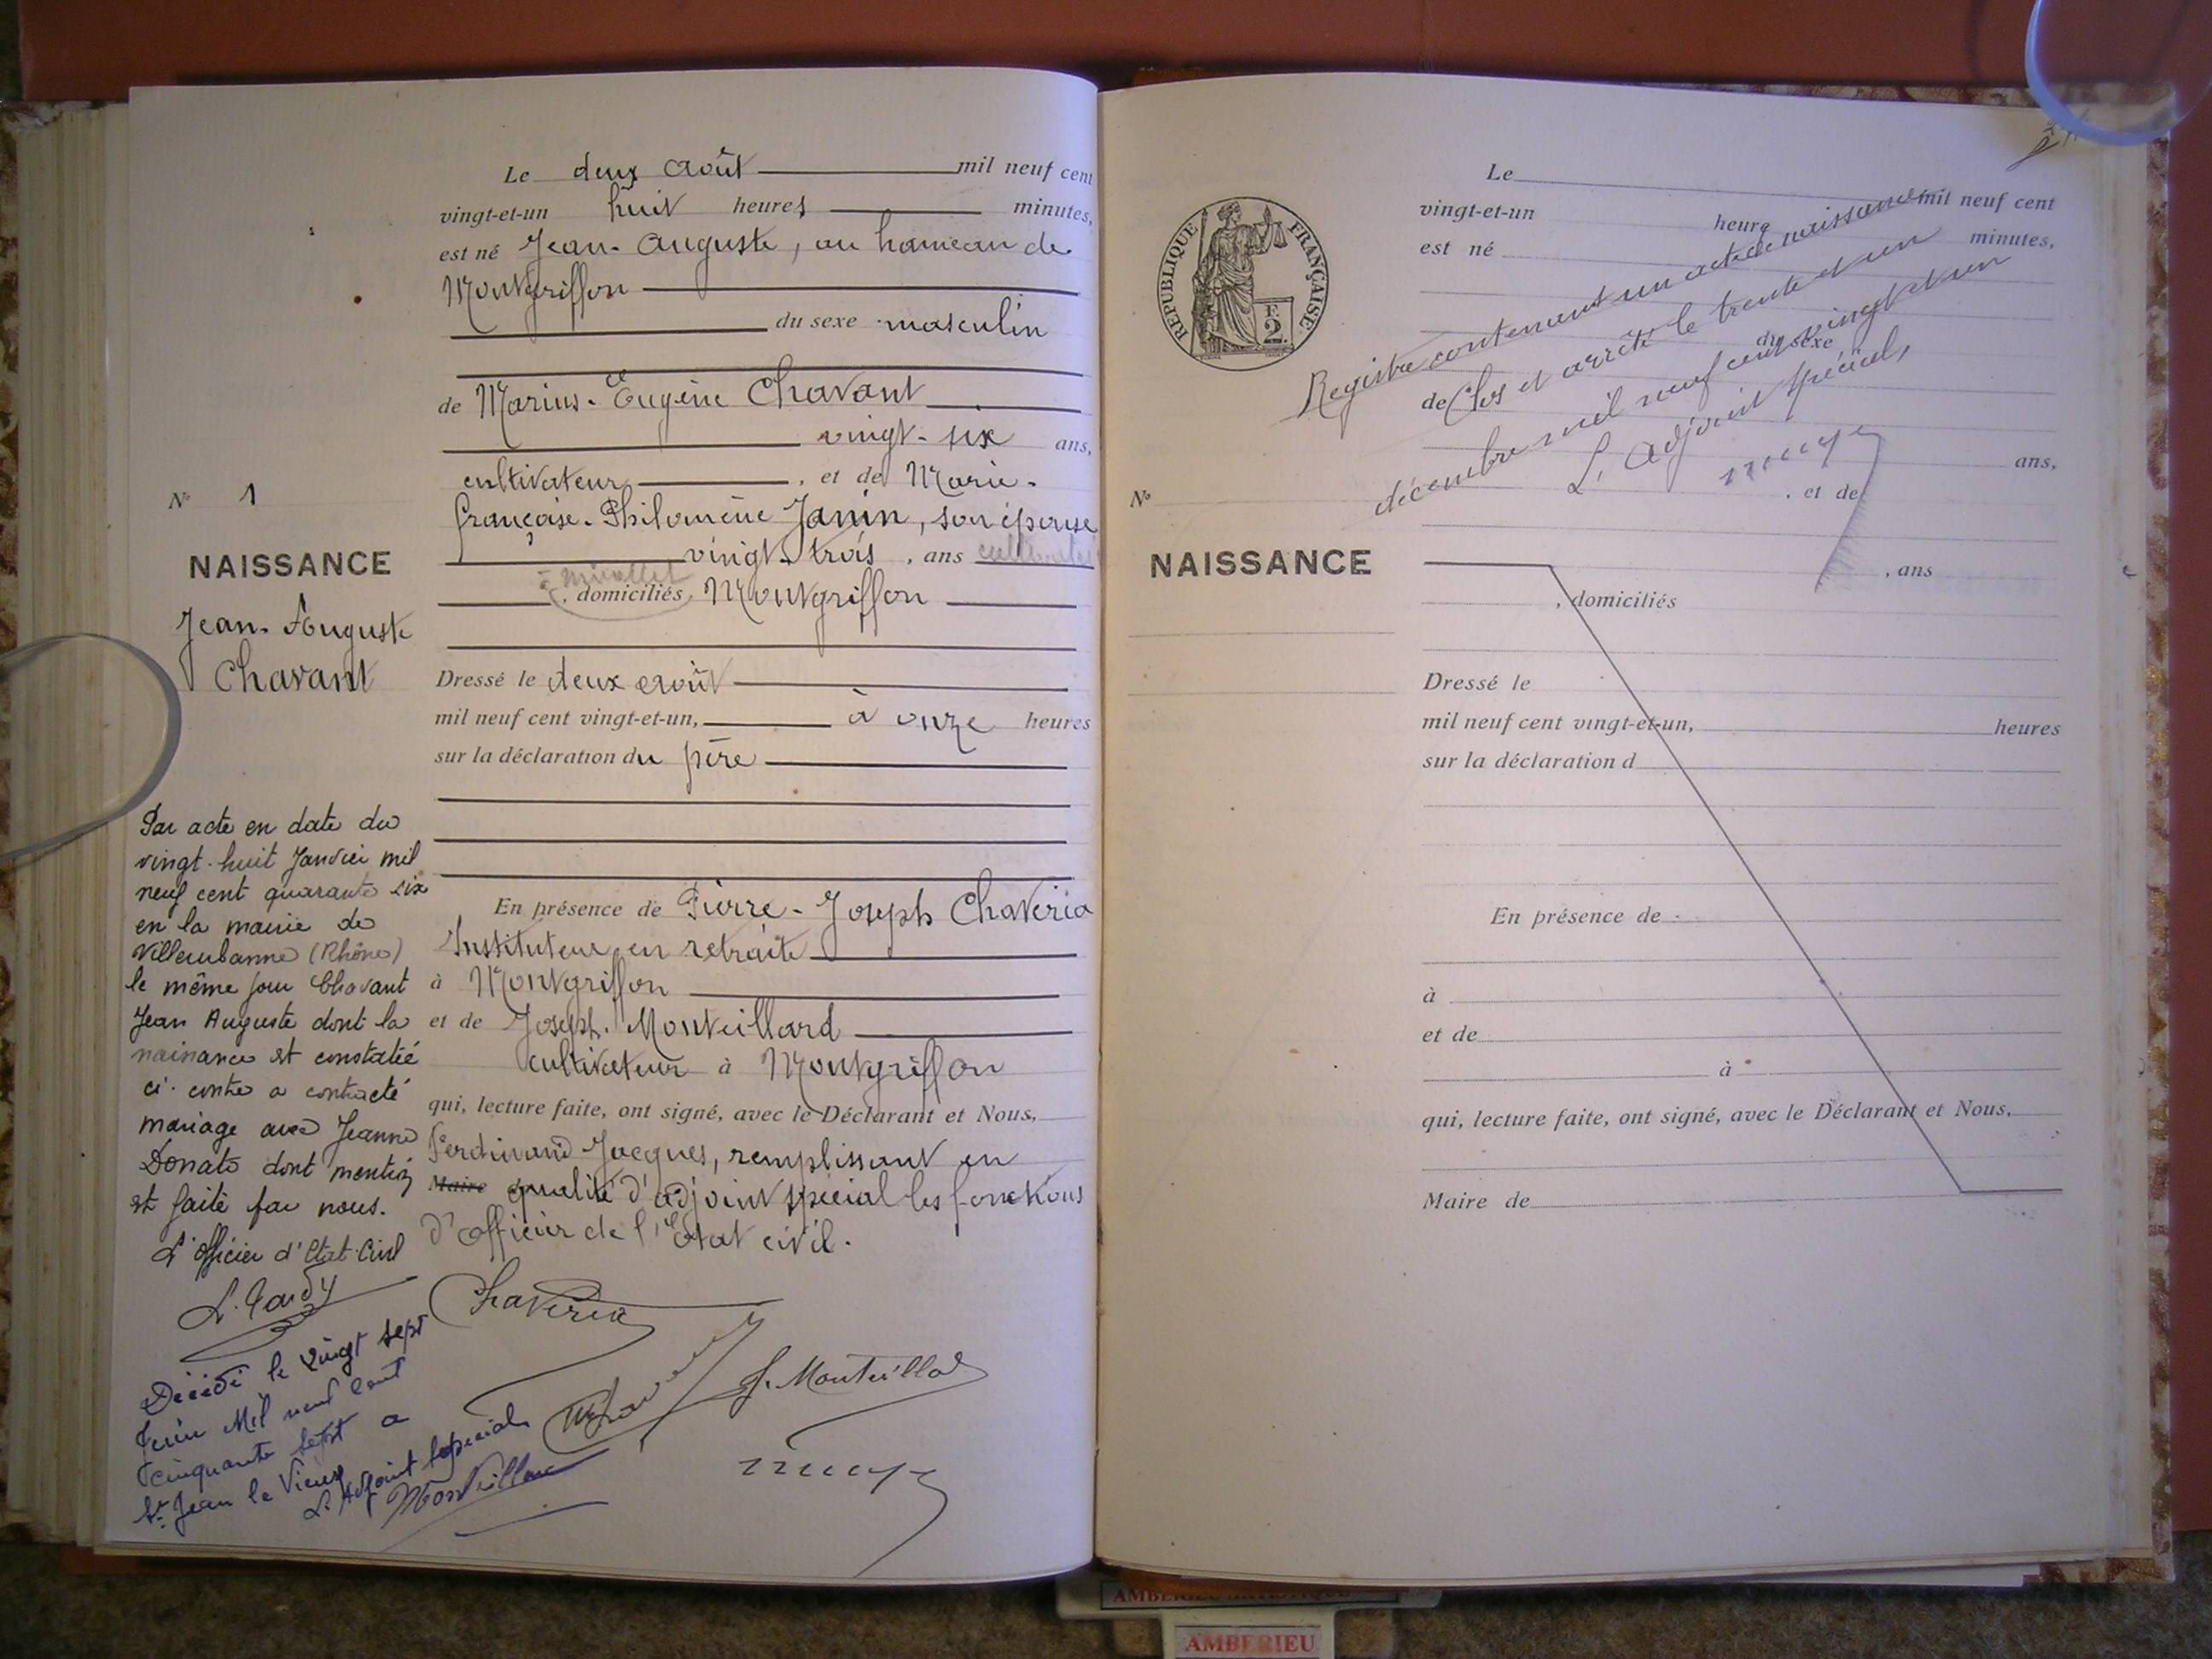 Le deux août mil neuf cent
vingt-et-un huit heures minutes,
est né Jean-Auguste, au hameau de
Montgriffon
du sexe masculin
de Marius-Eugène Chavant
vingt-six ans,
cultivateur, et de Marie-
Françoise-Philomène Janin, son épouse
vingt-trois, ans
domiciliés, Montgriffon
Dressé le deux août
mil neuf cent vingt-et-un, à onze heures
sur la déclaration du père
En présence de Pierre-Joseph Chaveria
Instituteur en retraite
à Montgriffon
et de Joseph Monteillard
cultivateur à Montgriffon
qui, lecture faite, ont signé, avec le Déclarant et Nous,
Ferdinand Jacques, remplissant en
Maire qualité d'adjoint spécial les fonctions
d'officier de l'Etat civil.
Chaveria
J. Monteillard
N° 1
NAISSANCE
Jean-Auguste
Chavant
Par acte en date du
vingt-huit Janvier mil
neuf cent quarante six
en la mairie de
Villeurbanne (Rhône)
le même jour Chavant
Jean Auguste dont la
naissance est constatée
ci-contre a contracté
mariage avec Jeanne
Donato dont mention
est faite par nous.
L'officier d'Etat-Civil
L. Tardy
Décédé le vingt sept
Juin Mil neuf cent
cinquante sept a
St Jean le Vieux
L'Adjoint Spécial
Monteillard
REPUBLIQUE FRANÇAISE
E.
2.
Le mil neuf cent
vingt-et-un heure minutes,
est né
du sexe
de
ans,
, et de
, ans
, domiciliés
Registre contenant un acte de naissance
Clos et arrêté le trente et un
décembre mil neuf cent vingt et un
L'Adjoint Spécial,
N°
NAISSANCE
Dressé le
mil neuf cent vingt-et-un, heures
sur la déclaration d
En présence de
à
et de
à
qui, lecture faite, ont signé, avec le Déclarant et Nous,
Maire de
AMBERIEU